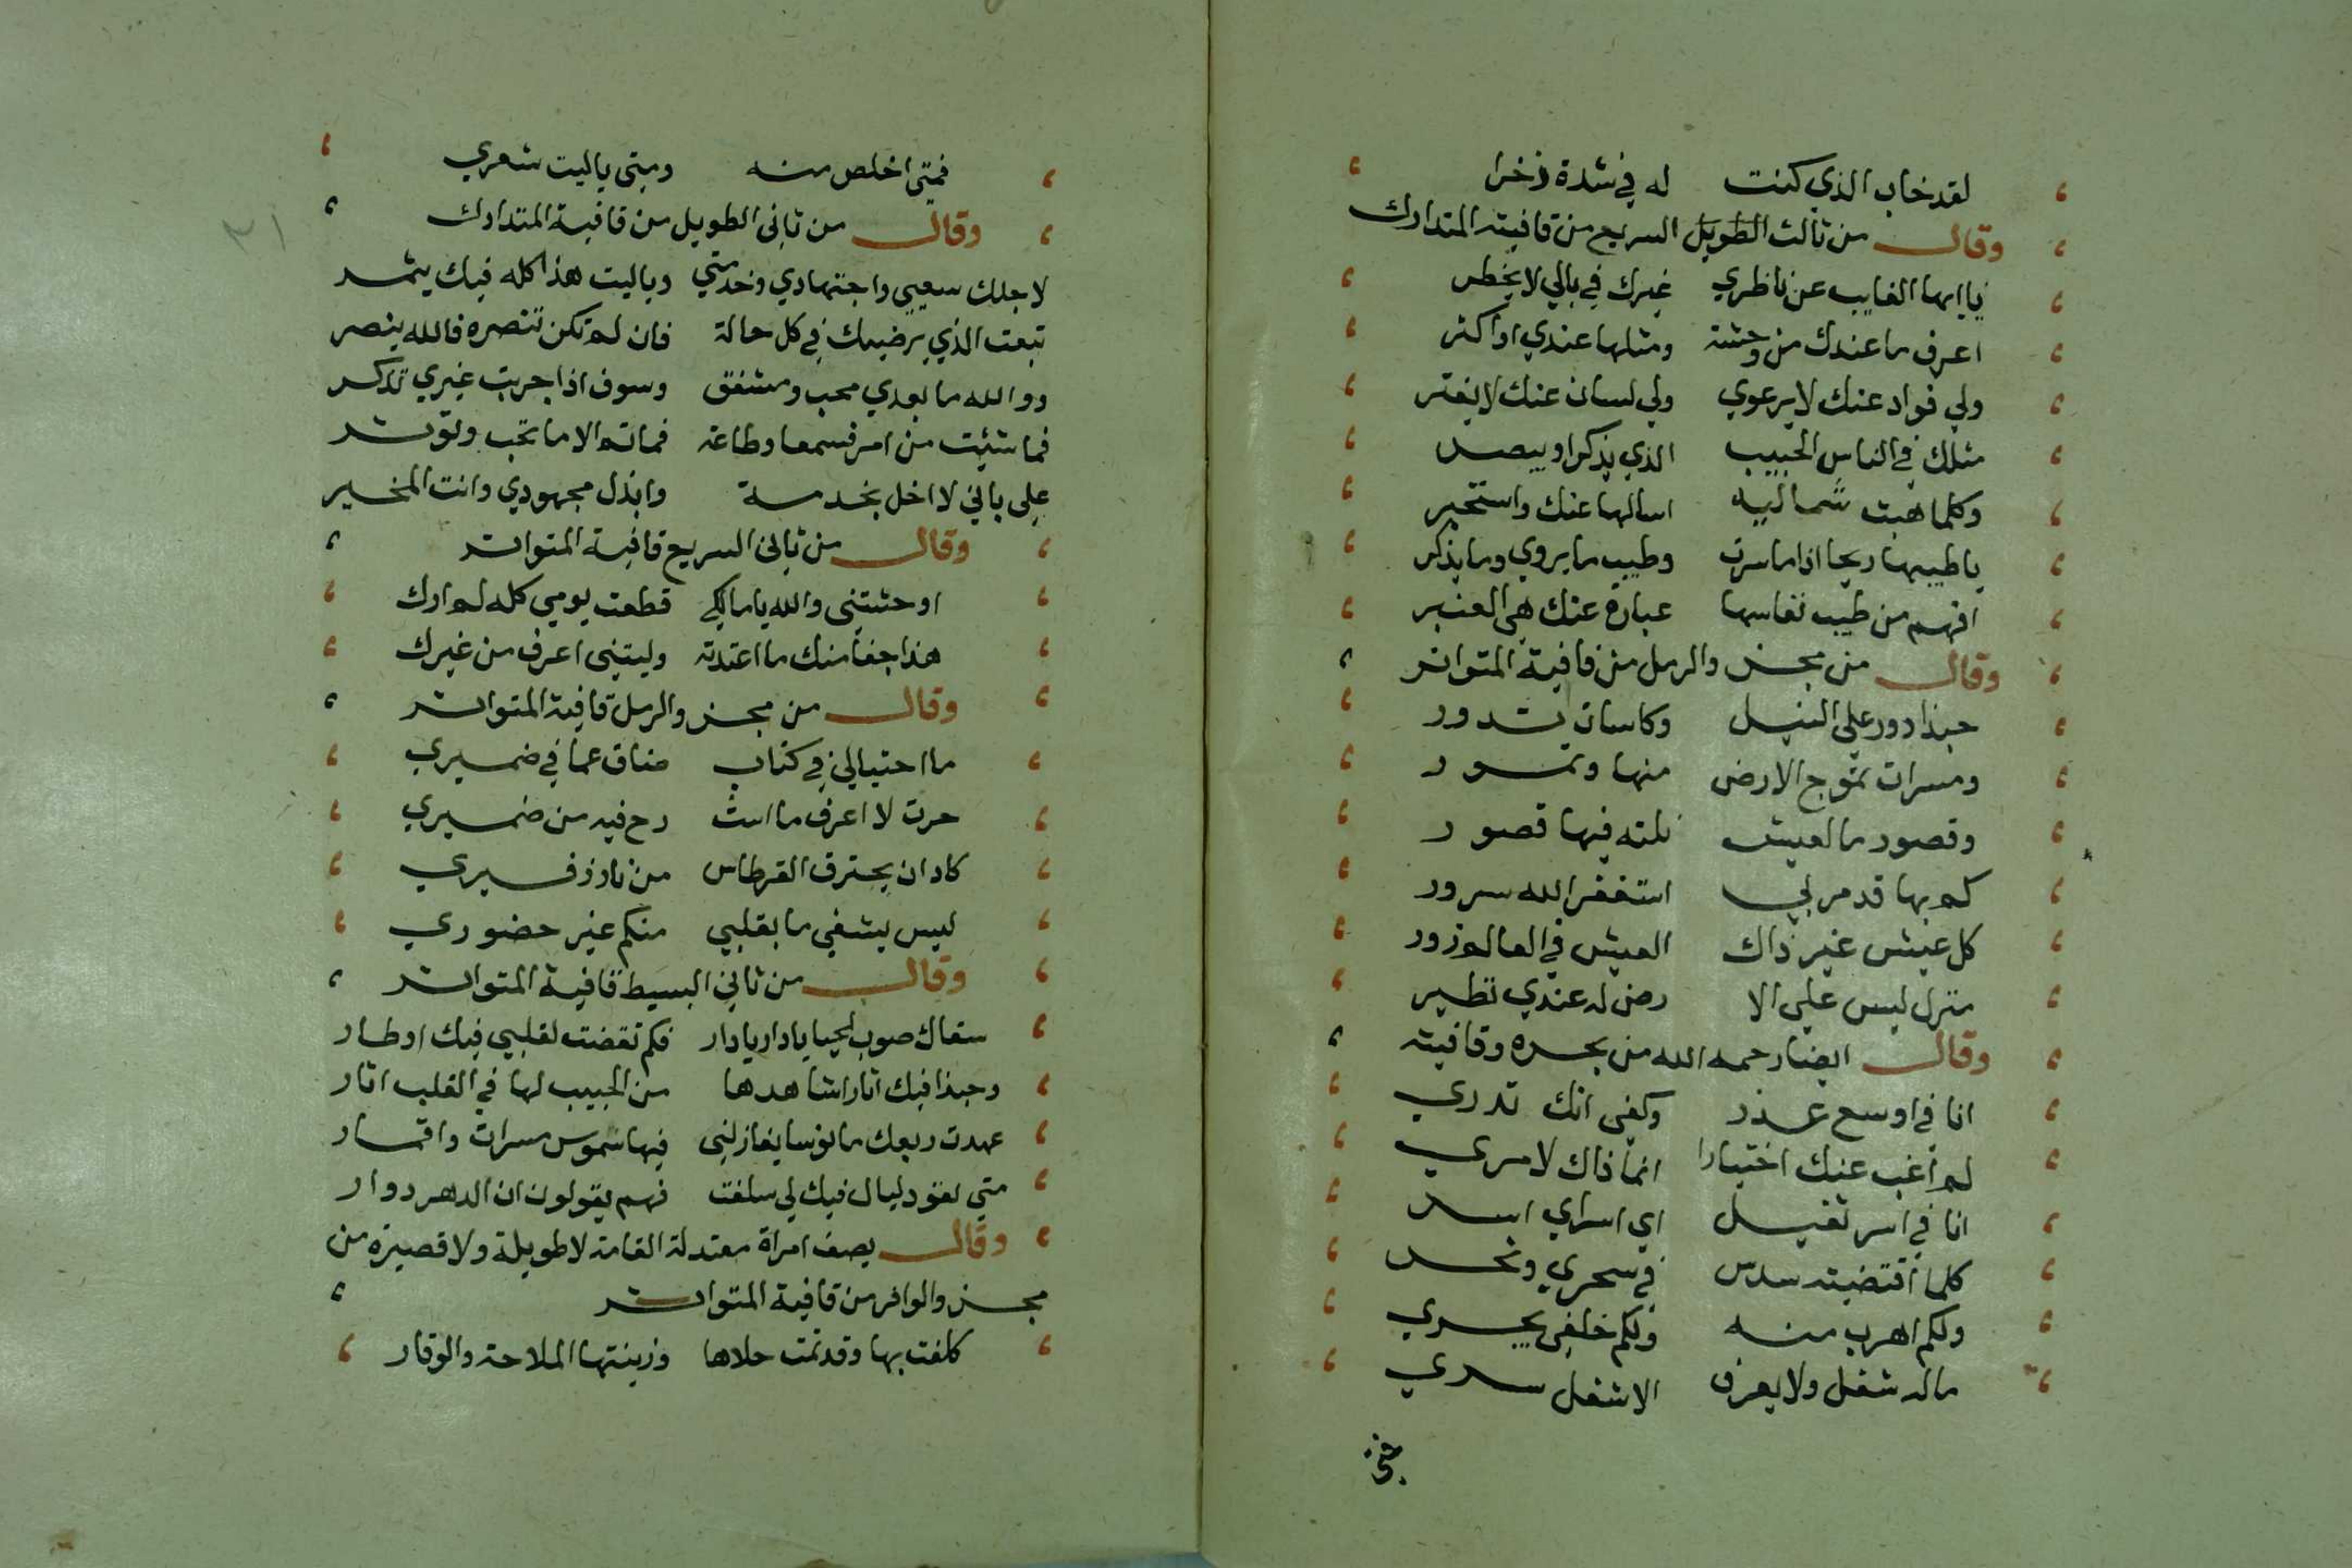 لقد خاب الذي كنت له في شدة ذخرا
وقال من ثالث الطويل السريع من قافيته المتدارك
يا ايها الغايب عن ناظري غيرك في بالي لا يخطر
اعرف ما عندك من وحشة ومثلها عندي او اكثر
ولي فواد عنك لا يرعوي ولي لسان عنك لا يفتر
مثلك في الناس الحبيب الذي يذكر او يبصر
وكلما هبت شماليه اسالها عنك واستخبر
يا طيبها ريحا اذا ما سرت وطيب ما يروي وما يذكر
افهم من طيب نفاسها عبارة عنك هي العنبر
وقال من مجزو الرمل من قافية المتواتر
حبذا دور علي النيل وكاسات تدور
ومسرات تموج الارض منها وتمور
وقصور ما لعيش نلته فيها قصور
كم بها قد مر لي استغفر الله سرور
كل عيش غير ذاك العيش في العالم زور
منزل ليس علي الا رض له عندي نظير
وقال ايضا رحمه الله من بحره وقافيته
انا في اوسع عذر وكفي انك تدري
لم اغب عنك اختيارا انما ذاك لامري
انا في اسر ثقيل اي اسراي اسر
كلما اقتضيته سدس في سحري ونحر
ولكم اهرب منه ولكم خلفي يجري
ماله شغل ولا يعرف الا شغل سري
فمتي
فمتي اخلص منه ومتي ياليت شعري
وقال من ثاني الطويل من قافية المتدارك
٢١
لاجلك سعيي واجتهادي وخدمتي وياليت هذا كله فيك يثمر
تبعت الذي يرضيك في كل حالة فان لم تكن تنصره فالله ينصر
ووالله ما بعدي محب ومشفق وسوف اذا جربت غيري تذكر
فما شيت من امر فسمعا وطاعة فماثم الا ما تحب وتوثر
علي باني لا اخل بخدمة وابذل مجهودي وانت المخير
وقال من ثاني السريع قافية المتواتر
اوحشتني والله يا مالكي قطعت يومي كله لم ارك
هذا جفا منك ما اعتدته وليتني اعرف من غيرك
وقال من مجزو الرمل قافية المتواتر
ما احتيالي في كتاب ضاق عما في ضميري
حرت لا اعرف ما اش رح فيه من ضميري
كاد ان يحترق القرطاس من نار زفيري
ليس يشفي ما بقلبي منكم غير حضوري
وقال من ثاني البسيط قافية المتواتر
سقاك صوب الحيا يا دار يا دار فكم تقضت لقلبي فيك اوطار
وحبذا فيك اثار اشاهدها من الحبيب لها في القلب اثار
عهدت ربعك مانوسا يغازلني فيها شموس مسرات واقمار
متي تعود ليال فيك لي سلفت فهم يقولون ان الدهر دوار
وقال يصف امراة معتدلة القامة لا طويلة ولا قصيرة من
مجزو الوافر من قافية المتواتر
كلفت بها وقد تمت حلاها وزينتها الملاحة والوقار